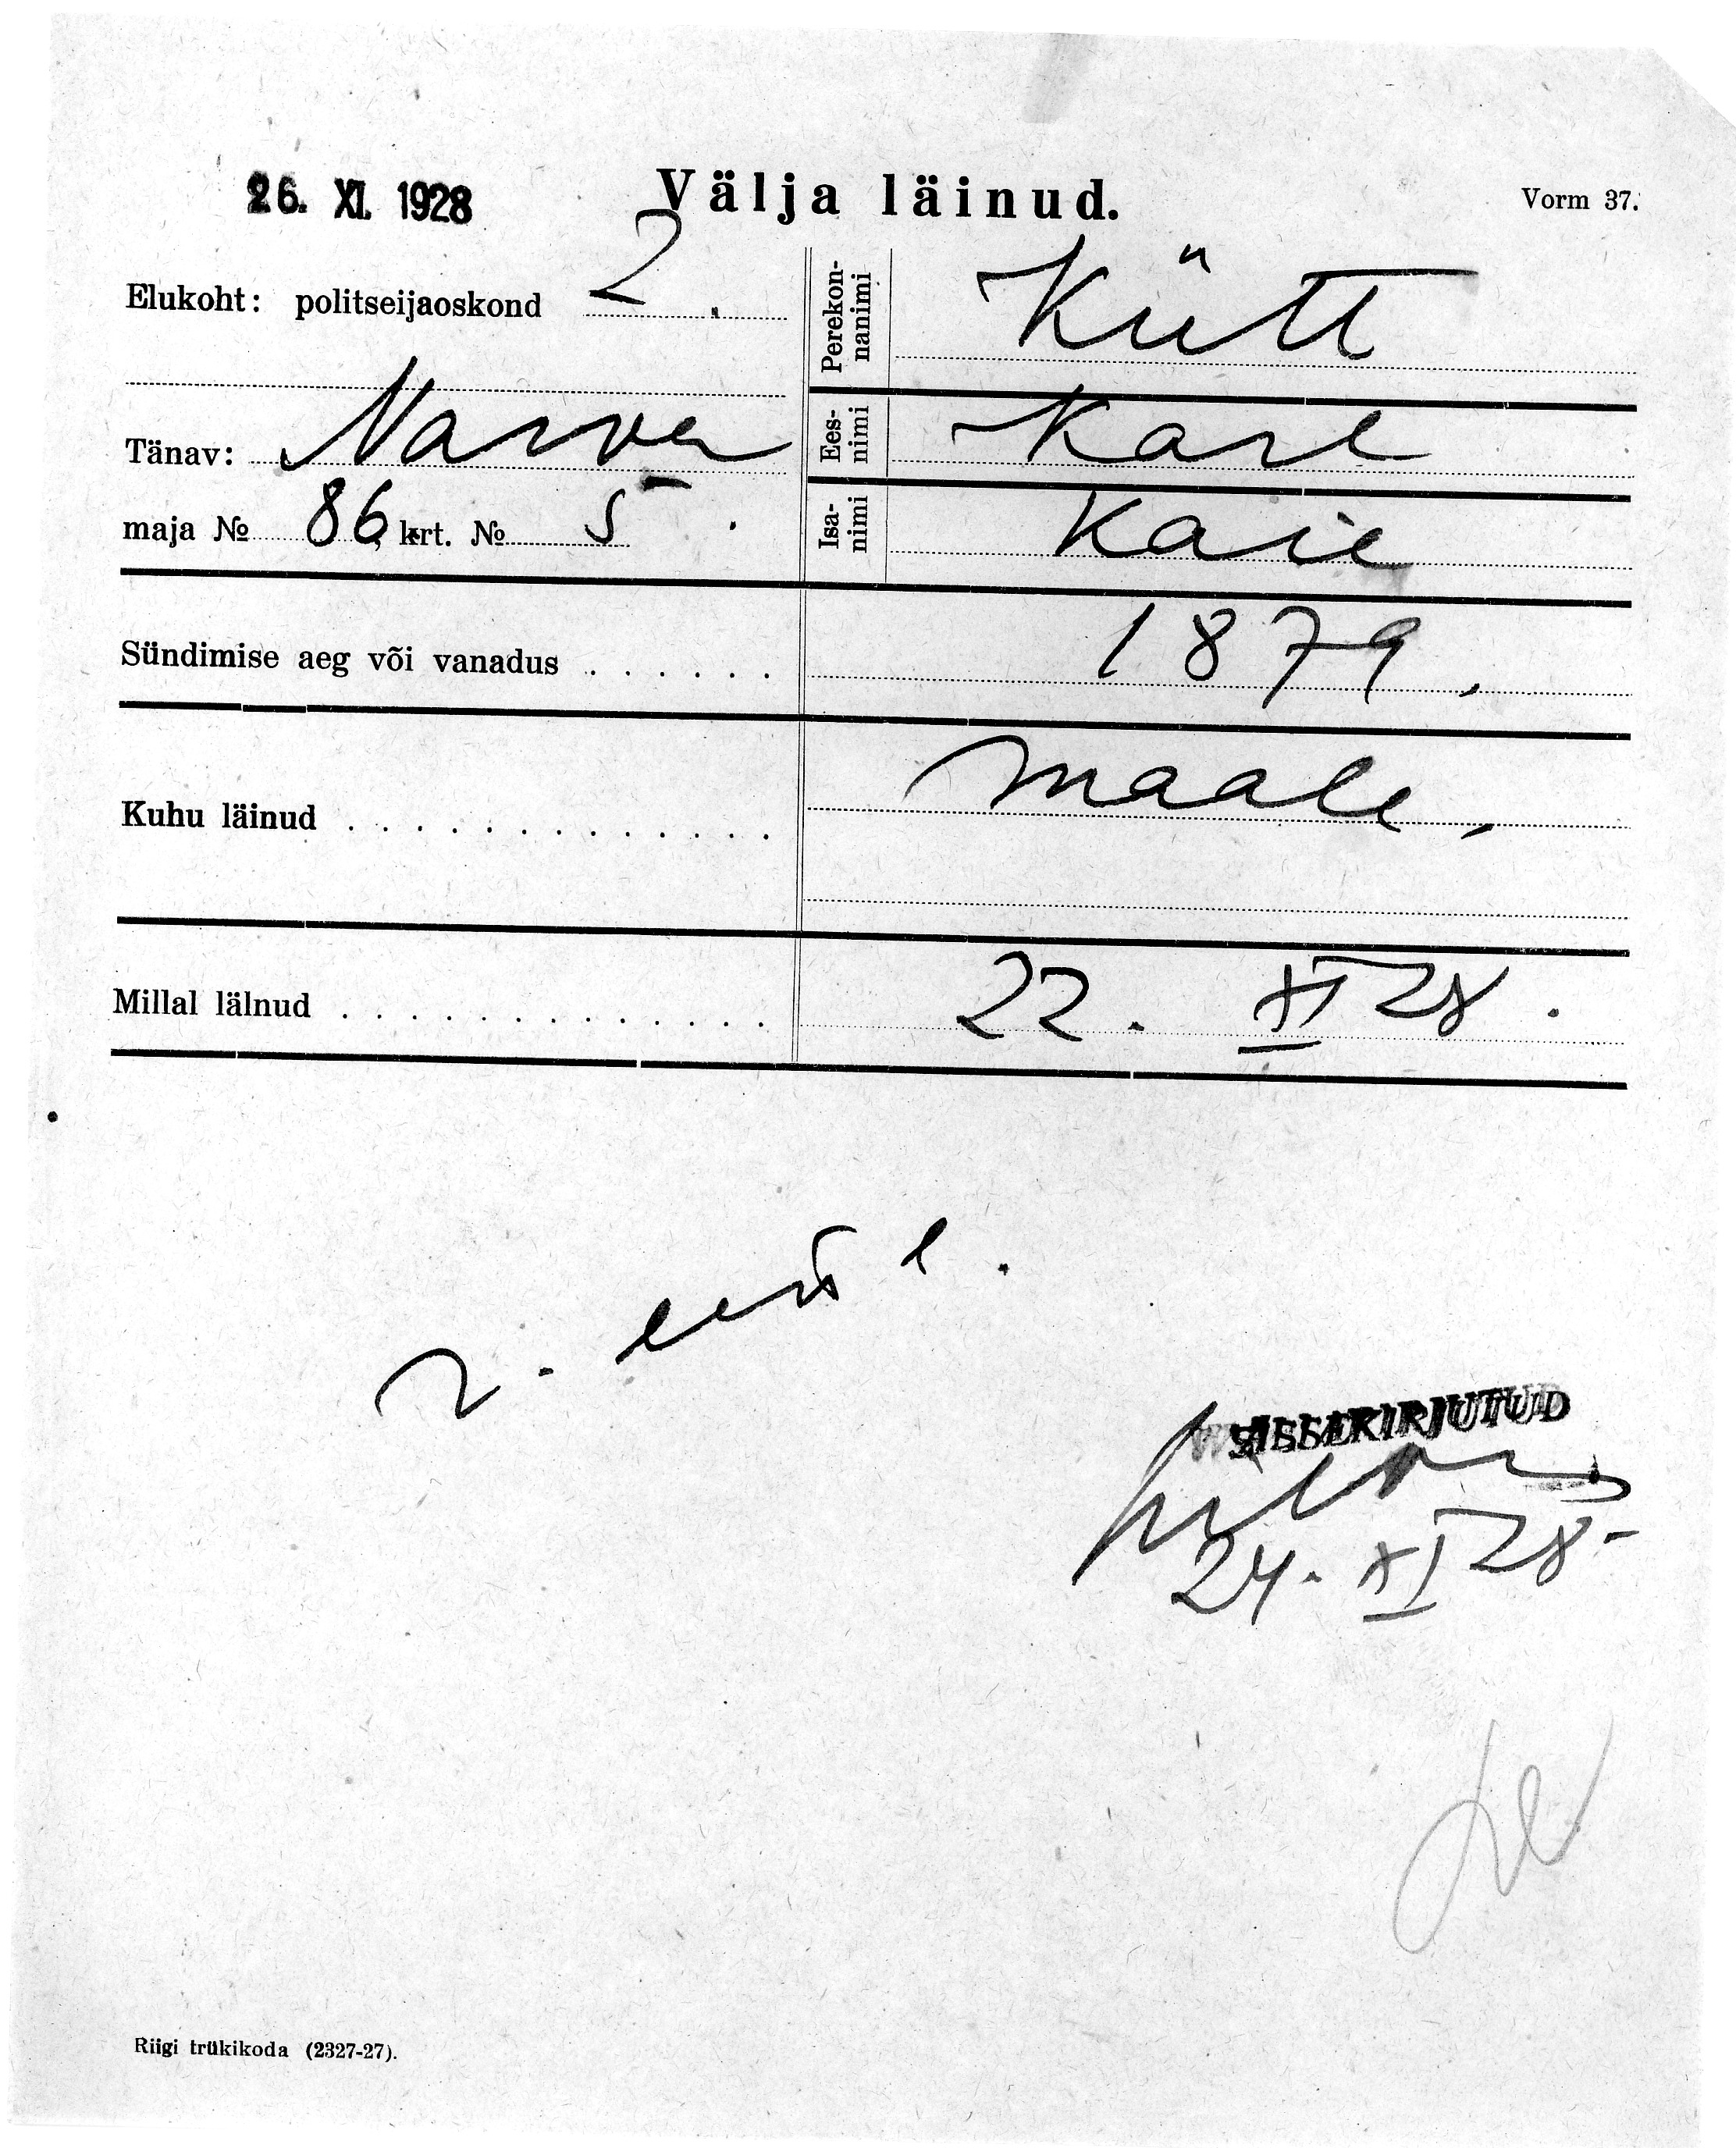 26. XI. 1928
Välja läinud.
Vorm 37.
Elukoht: politseijaoskond 2.
Tänav: Narva
maja № 86, krt. № 5.
Perekonnanimi Kütt
Eesnimi Karl
Isanimi Karl
Sündimise aeg või vanadus . . . . . . 1879.
Kuhu läinud . . . . . . . . . . . . . maale,
Millal läinud . . . . . . . . . . . . . 22. XI 28.
SISSEKIRJUTUD
24. XI 28-
Riigi trükikoda (2327-27).